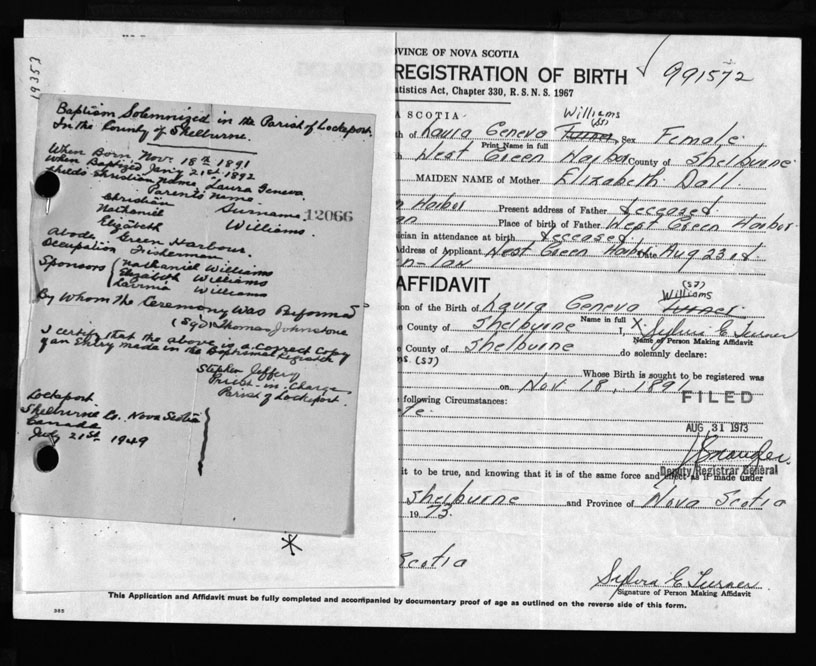 19353
Baptism Solemnized in the Parish of Lockeport.
In the County of Shelburne.
When Born Nov. 18th 1891
When Baptized Jan'y 21st 1892
Child's Christian Name Laura Geneva.
Parents Name.
Christian Surname
Nathaniel Williams.
Elizabeth
12066
Abode Green Harbour.
Occupation Fisherman
Sponsors Nathaniel Williams
Elizabeth Williams
Lavinia Williams
By Whom the Ceremony Was Performed
(Sgd) Thomas Johnstone
I certify that the above is a correct copy
of an Entry made in the Baptismal Register
Stephen Jeffery
Priest-in-Charge
Parish of Lockeport.
Lockeport.
Shelburne Co. Nova Scotia
Canada
July 21st 1949
OVINCE OF NOVA SCOTIA
REGISTRATION OF BIRTH 991572
atistics Act, Chapter 330, R.S.N.S. 1967
A SCOTIA
Williams
(SJ)
th of Laura Geneva Turner Sex Female
Print Name in full
West Green Harbor County of Shelburne
MAIDEN NAME of Mother Elizabeth Dall.
Harbor Present address of Father deceased.
an Place of birth of Father West Green Harbor
ician in attendance at birth deceased
Address of Applicant West Green Harbor Date Aug 23rd.
en-law
AFFIDAVIT
(SJ)
Williams
ion of the Birth of Laura Geneva Turner
Name in full
e County of Shelburne I, X Sylvia E. Turner
Name of Person Making Affidavit
e County of Shelburne do solemnly declare:
ms. (SJ)
Whose Birth is sought to be registered was
on Nov 18, 1891
following Circumstances:
FILED
AUG 31 1973
Deputy Registrar General
it to be true, and knowing that it is of the same force and effect as if made under
Shelburne and Province of Nova Scotia
1973.
Scotia
Sylvia E. Turner
Signature of Person Making Affidavit
This Application and Affidavit must be fully completed and accompanied by documentary proof of age as outlined on the reverse side of this form.